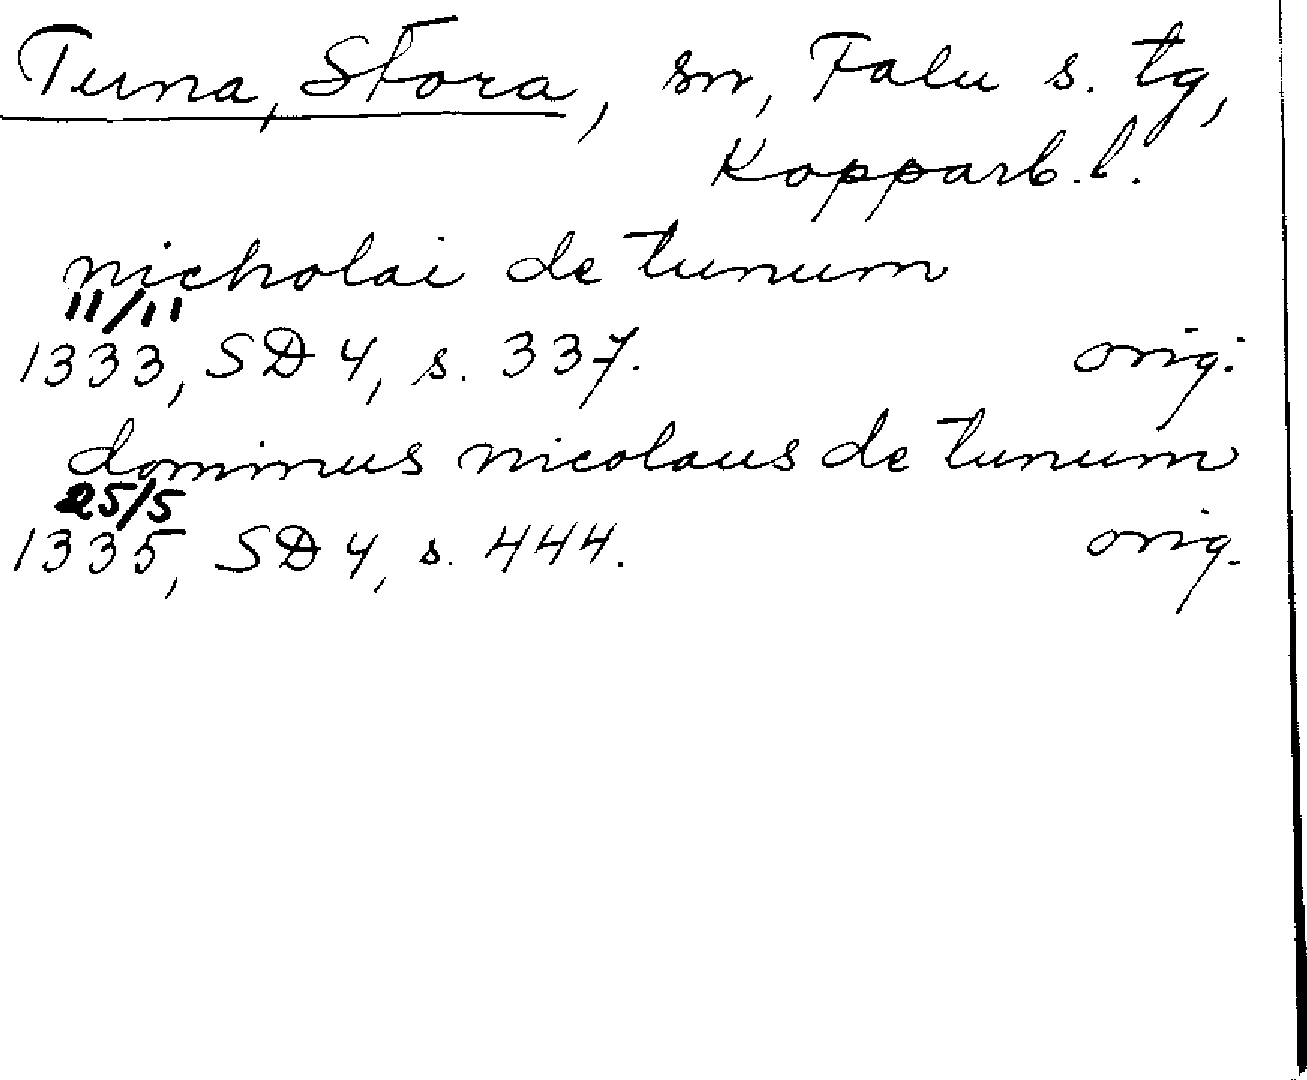 Tuna, Stora, sn, Falu s. tg,
Kopparb. l.
nicholai de tunum
11/11
1333, SD 4, s. 337. orig.
dominus nicolaus de tunum
25/5
1335, SD 4, s. 444. orig.